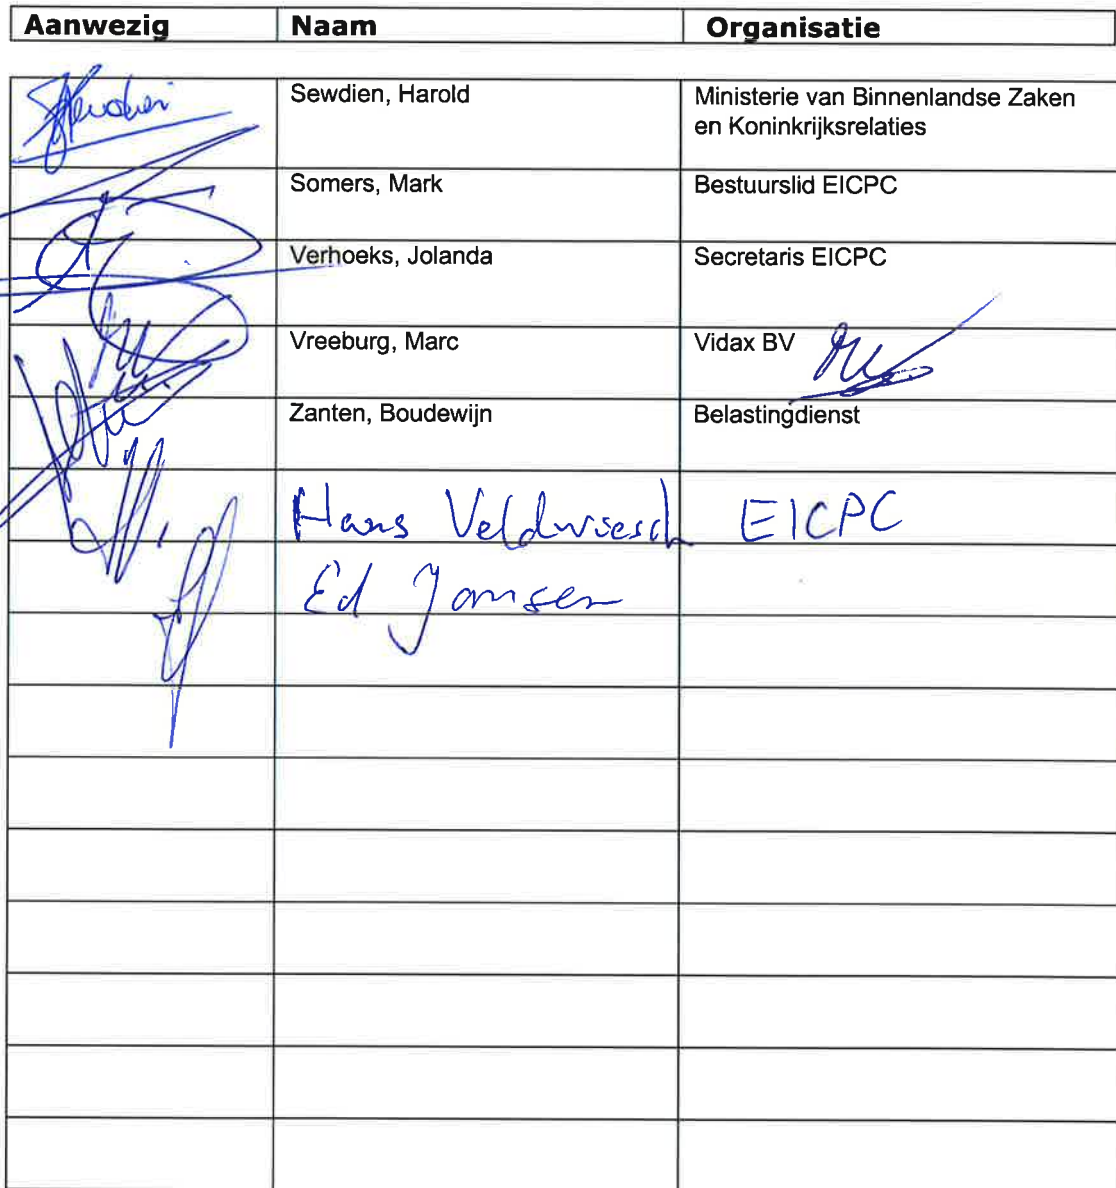 Aanwezig Naam Organisatie
Sewdien, Harold Ministerie van Binnenlandse Zaken
en Koninkrijksrelaties
Somers, Mark Bestuurslid EICPC
Verhoeks, Jolanda Secretaris EICPC
Vreeburg, Marc Vidax BV
Zanten, Boudewijn Belastingdienst
Hans Veldwiesch EICPC
Ed Jansen